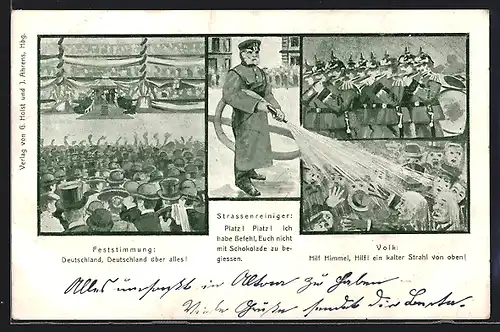 Verlag von G. Holst und J. Ahrens, Hbg.
Feststimmung:
Deutschland, Deutschland über alles!
Strassenreiniger:
Platz! Platz! Ich
habe Befehl, Euch nicht
mit Schokolade zu be-
giessen.
Volk:
Hilf Himmel, Hilf! ein kalter Strahl von oben!
Alles in Altona zu haben
Viele Grüße sendet dir